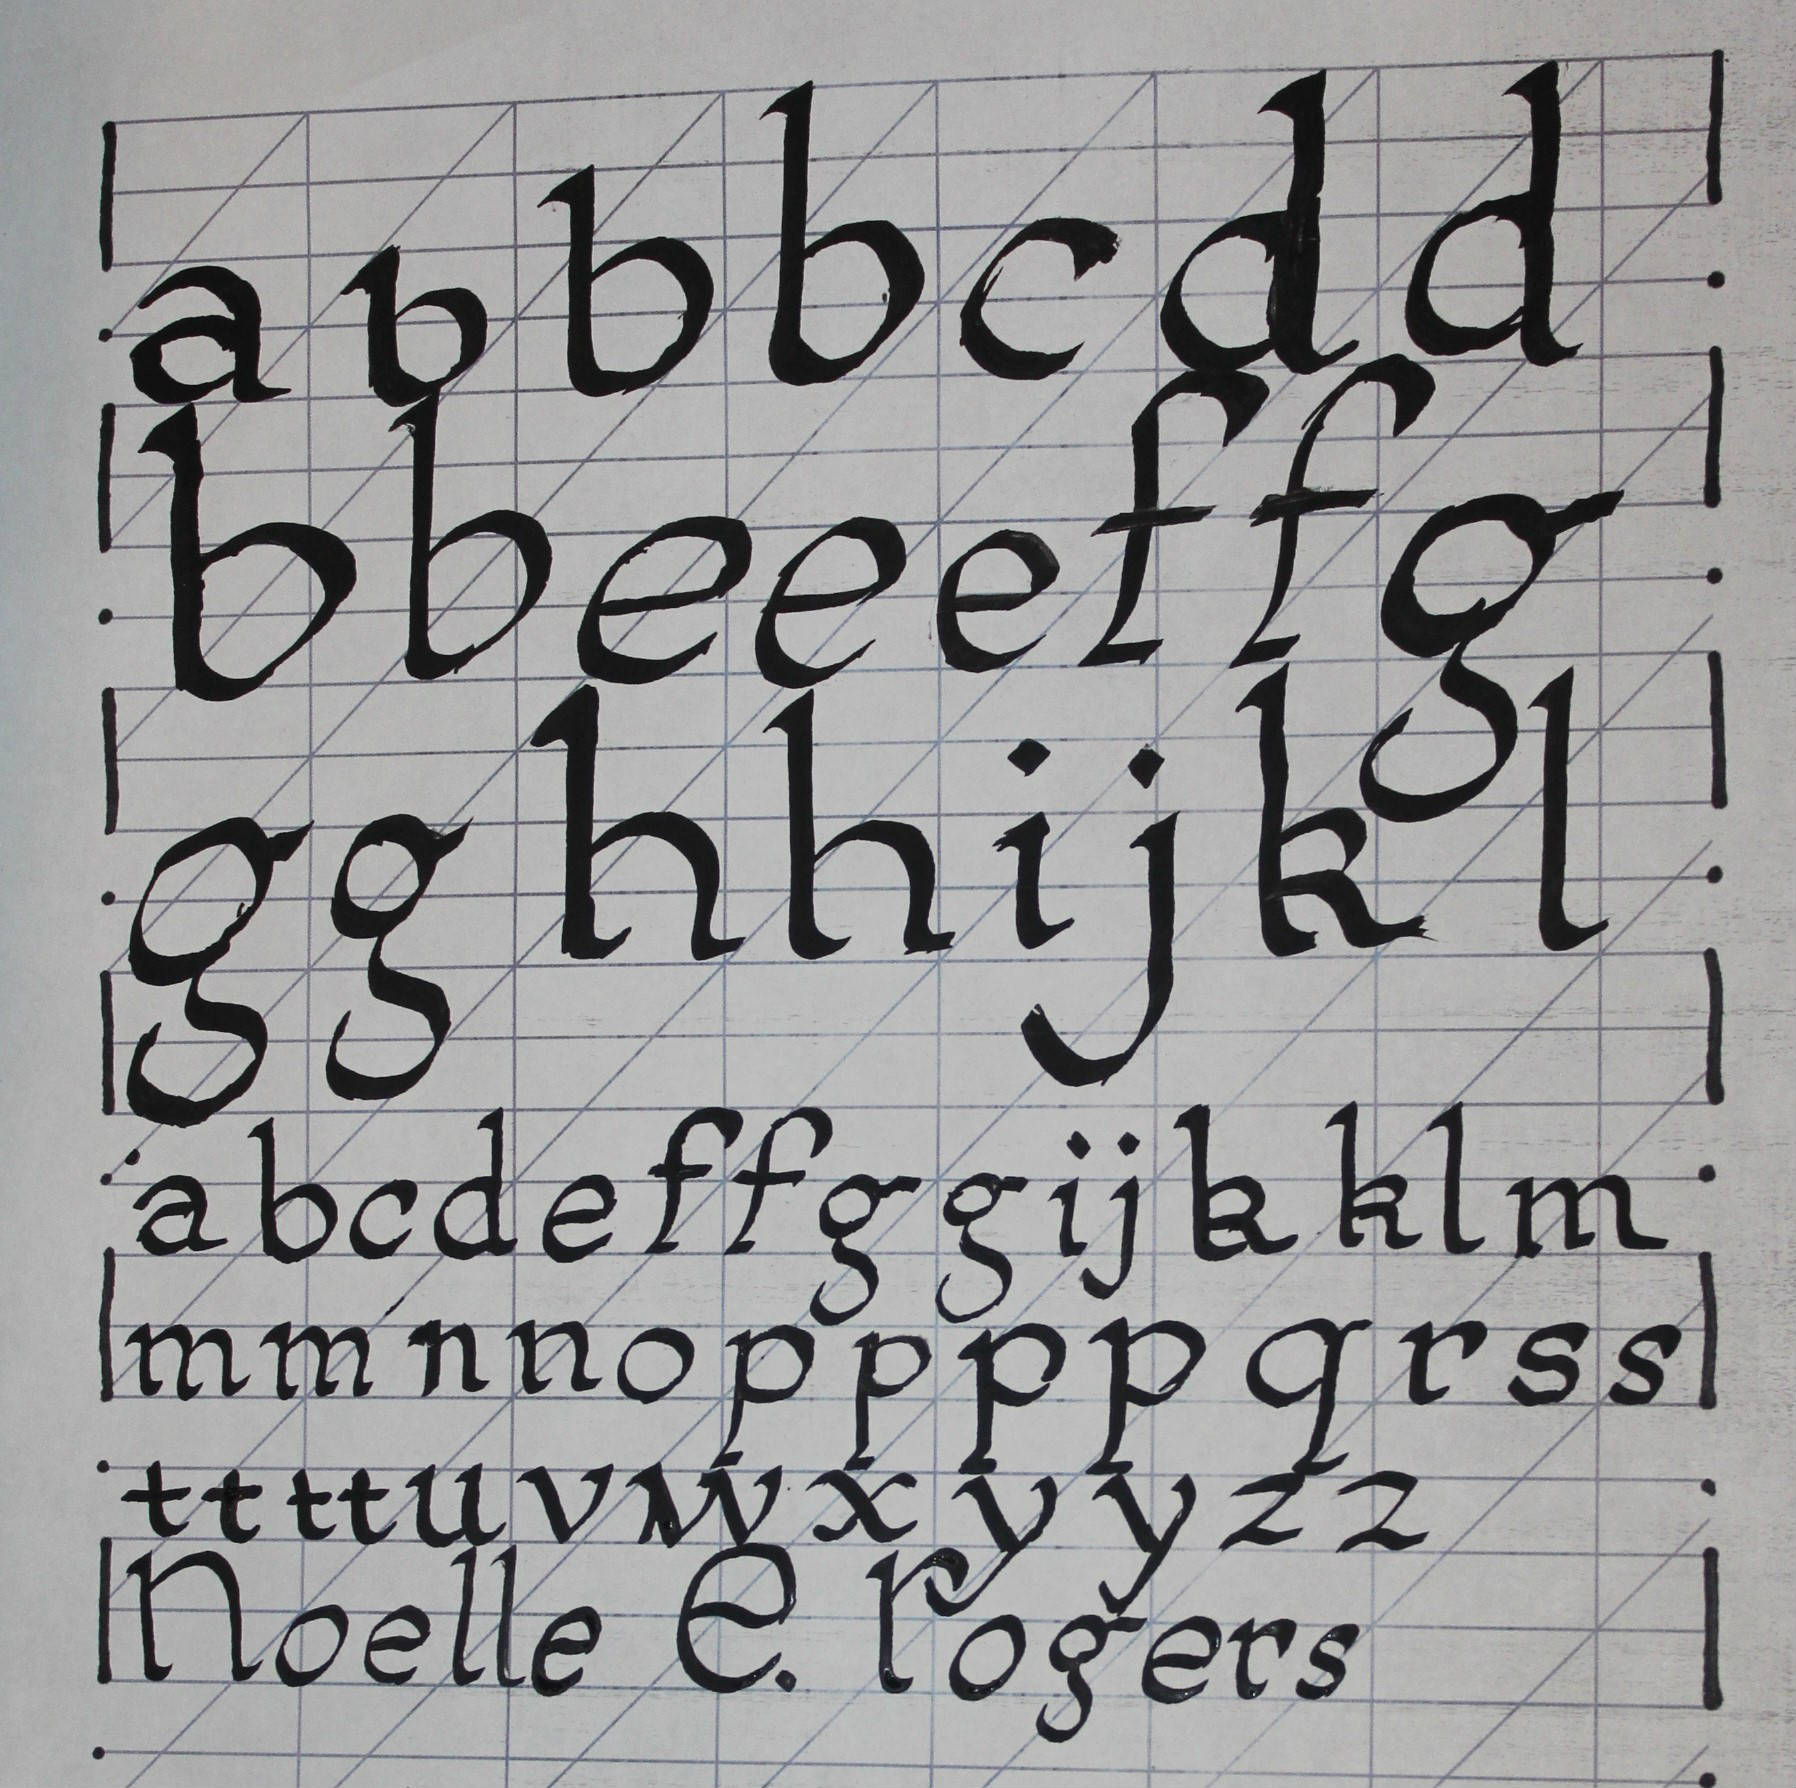 a b b b c d d
b b e e e f f g
g g h h i j k l
a b c d e f f g g i j k k l m
m m n n o p p p p q r s s
t t t t u v w x y y z z
Noelle E. Rogers